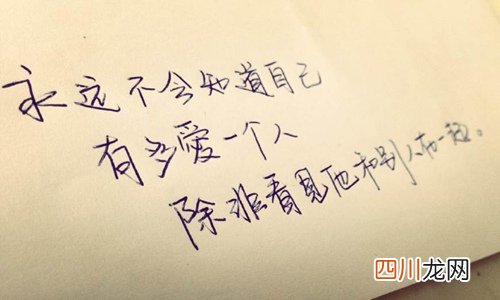 永远不会知道自己
有多愛一个人
除非看見他和别人在一起。
四川龙网